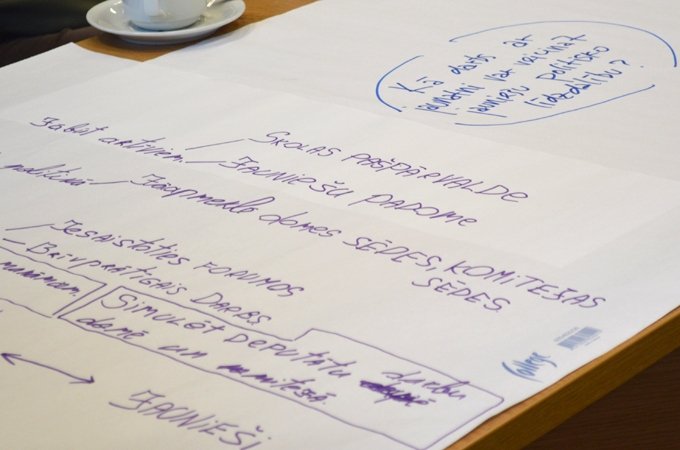 Kā darbs ar
jaunatni var veicināt
jauniešu politisko
līdzdalību?
SKOLAS PAŠPĀRVALDE
Jābūt aktīviem / JAUNIEŠU PADOME
politikā / Jāapmeklē domes SĒDES, KOMITEJAS
SĒDES
IESAISTOTIES FORUMOS
BRĪVPRĀTĪGAIS DARBS
SIMULĒT DEPUTĀTU darbu
domē un
JAUNIEŠI